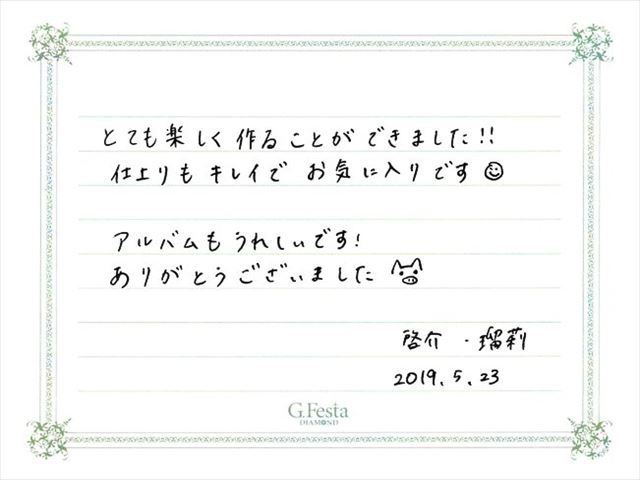 とても楽しく作ることができました!!
仕上りもキレイで お気に入りです
アルバムもうれしいです!
ありがとうございました
啓介・瑠莉
2019.5.23
G.Festa
DIAMOND